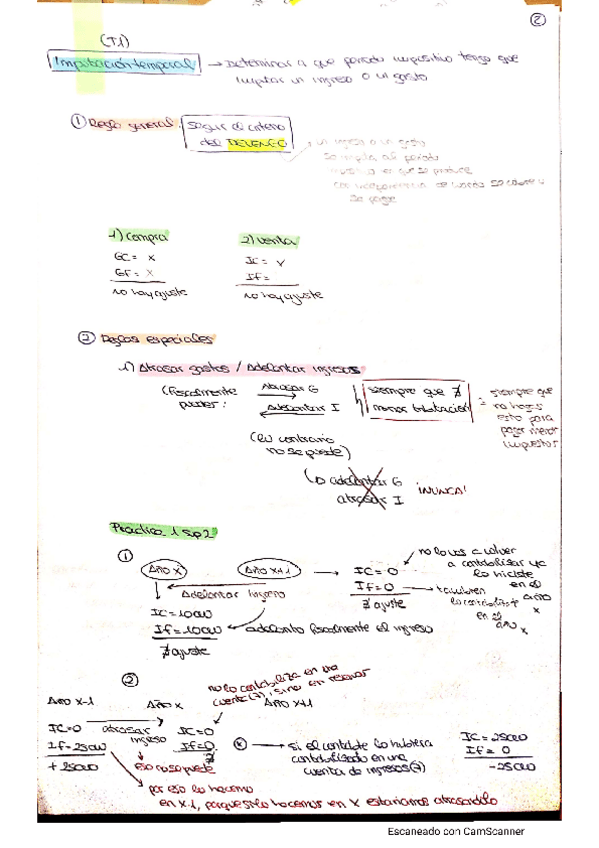 ②
(T1)
Imputación temporal → Determinar a que periodo impositivo tengo que
imputar un ingreso o un gasto
① Regla general: Seguir el criterio
del DEVENGO
un ingreso o un gasto
se imputa al periodo
impositivo en que se produce
con independencia de cuando se cobre o
se pague
1) compra 2) venta
GC = X IC = Y
GF = X If =
no hay ajuste no hay ajuste
② Reglas especiales
1) Atrasar gastos / Adelantar ingresos
(Fiscalmente Atrasar G siempre que ∄ = siempre que
puedes: Adelantar I menor tributación no hagas
esto para
pagar menor
impuestos
(lo contrario
no se puede)
(o adelantar G
atrasar I ¡NUNCA!
Practica 1 sp2
① no lo vas a volver
Año X Año X+1 → IC=0 a contabilizar ya
lo hiciste
Adelantar ingreso If=0 → tambien en el
∄ ajuste lo contabilizast año
IC=1000 en el x
If=1000 ← adelanto fiscalmente el ingreso año x
∄ ajuste
② no lo contabiliza en una
cuenta (7), sino en reservas
Año X-1 Año X Año X+1
IC=0 atrasar IC=0
If=2500 ingreso If=0 * → si el contable lo hubiera IC=2500
+2500 contabilizado en una If=0
eso no se puede cuenta de ingresos (7) -2500
por eso lo hacemos
en X-1, porque si lo hacemos en X estariamos atrasandolo
Escaneado con CamScanner